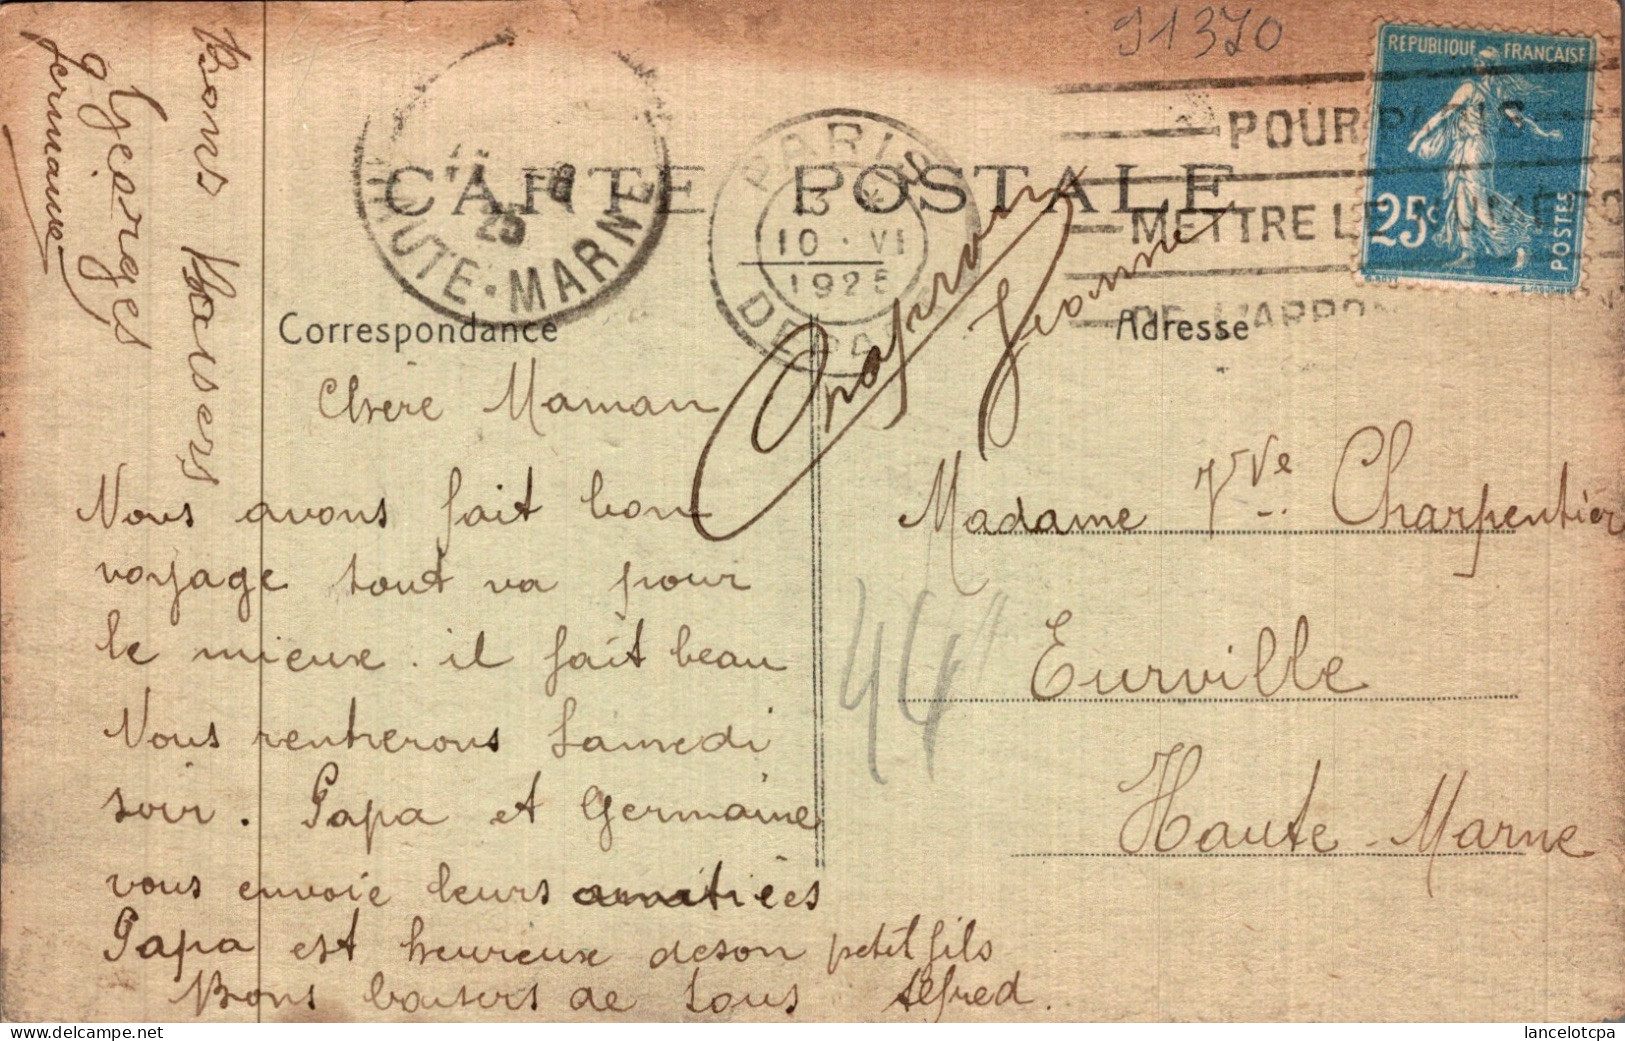 91370
REPUBLIQUE FRANCAISE
25c
POSTES
POUR PARIS
METTRE LE
DE L'ARRON
PARIS
13
10 · VI
1925
DEPA
25
8
HAUTE-MARNE
CARTE POSTALE
Correspondance
Adresse
Bons Baisers
Georges
germaine
Jeanne
Chère Maman
Nous avons fait bon
voyage tout va pour
le mieux. il fait beau
Nous rentrerons Samedi
soir. Papa et Germaine
vous envoie leurs amitiées
Papa est heureux deson petit fils
Bons baisers de tous Alfred.
Madame Vve Charpentier
Eurville
Haute-Marne
44
lancelotcpa